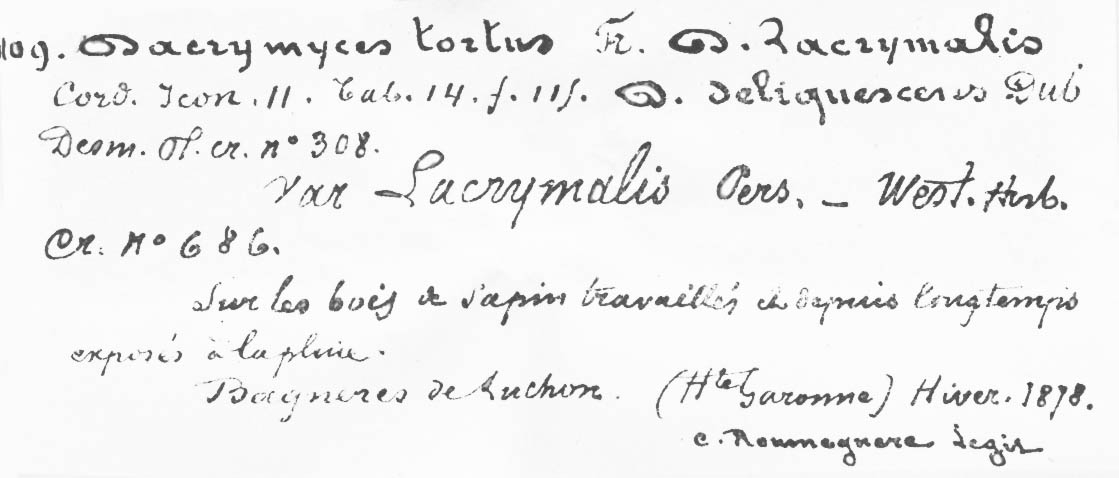 109. Dacrymyces tortus Fr. D. Lacrymalis
Cord. Icon. 11. Tab. 14. f. 115. D. deliquescens Dub
Desm. Pl. cr. n° 308.
Var Lacrymalis Pers. – West. Herb.
Cr. n° 686.
Sur les bois de Sapin travaillés et depuis longtemps
exposés à la pluie.
Bagneres de Luchon. (Hte Garonne) Hiver. 1878.
C. Roumeguere Legit